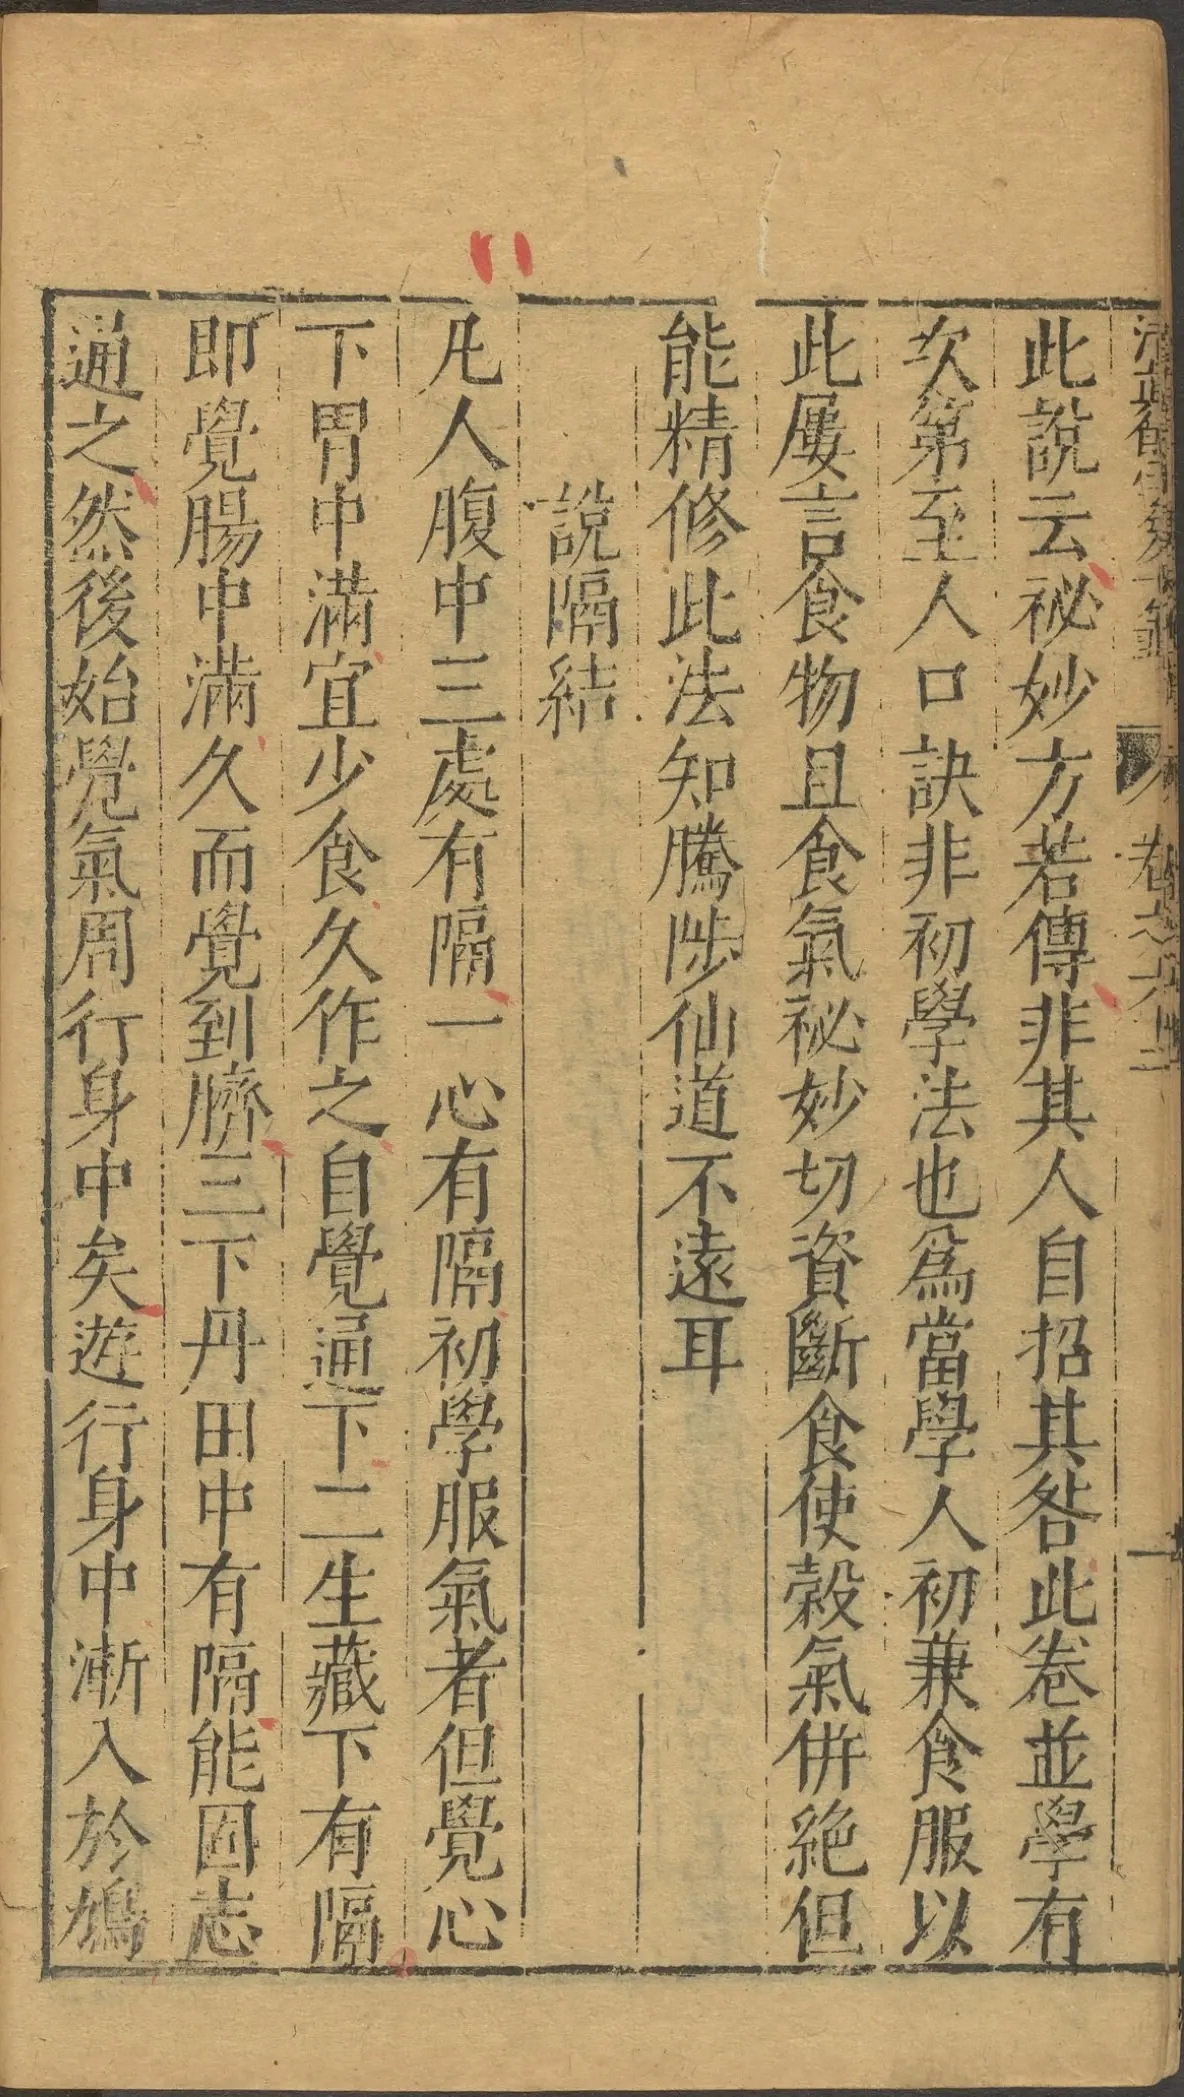 此說云祕妙方若傳非其人自招其咎此卷並學有
次第至人口訣非初學法也爲當學人初兼食服以
此屢言食物且食氣祕妙切資斷食使穀氣併絕但
能精修此法知騰陟仙道不遠耳
說隔結
凡人腹中三處有隔一心有隔初學服氣者但覺心
下胃中滿宜少食久作之自覺通下二生藏下有隔
即覺腸中滿久而覺到臍三下丹田中有隔能固志
通之然後始覺氣周行身中矣遊行身中漸入於鳩